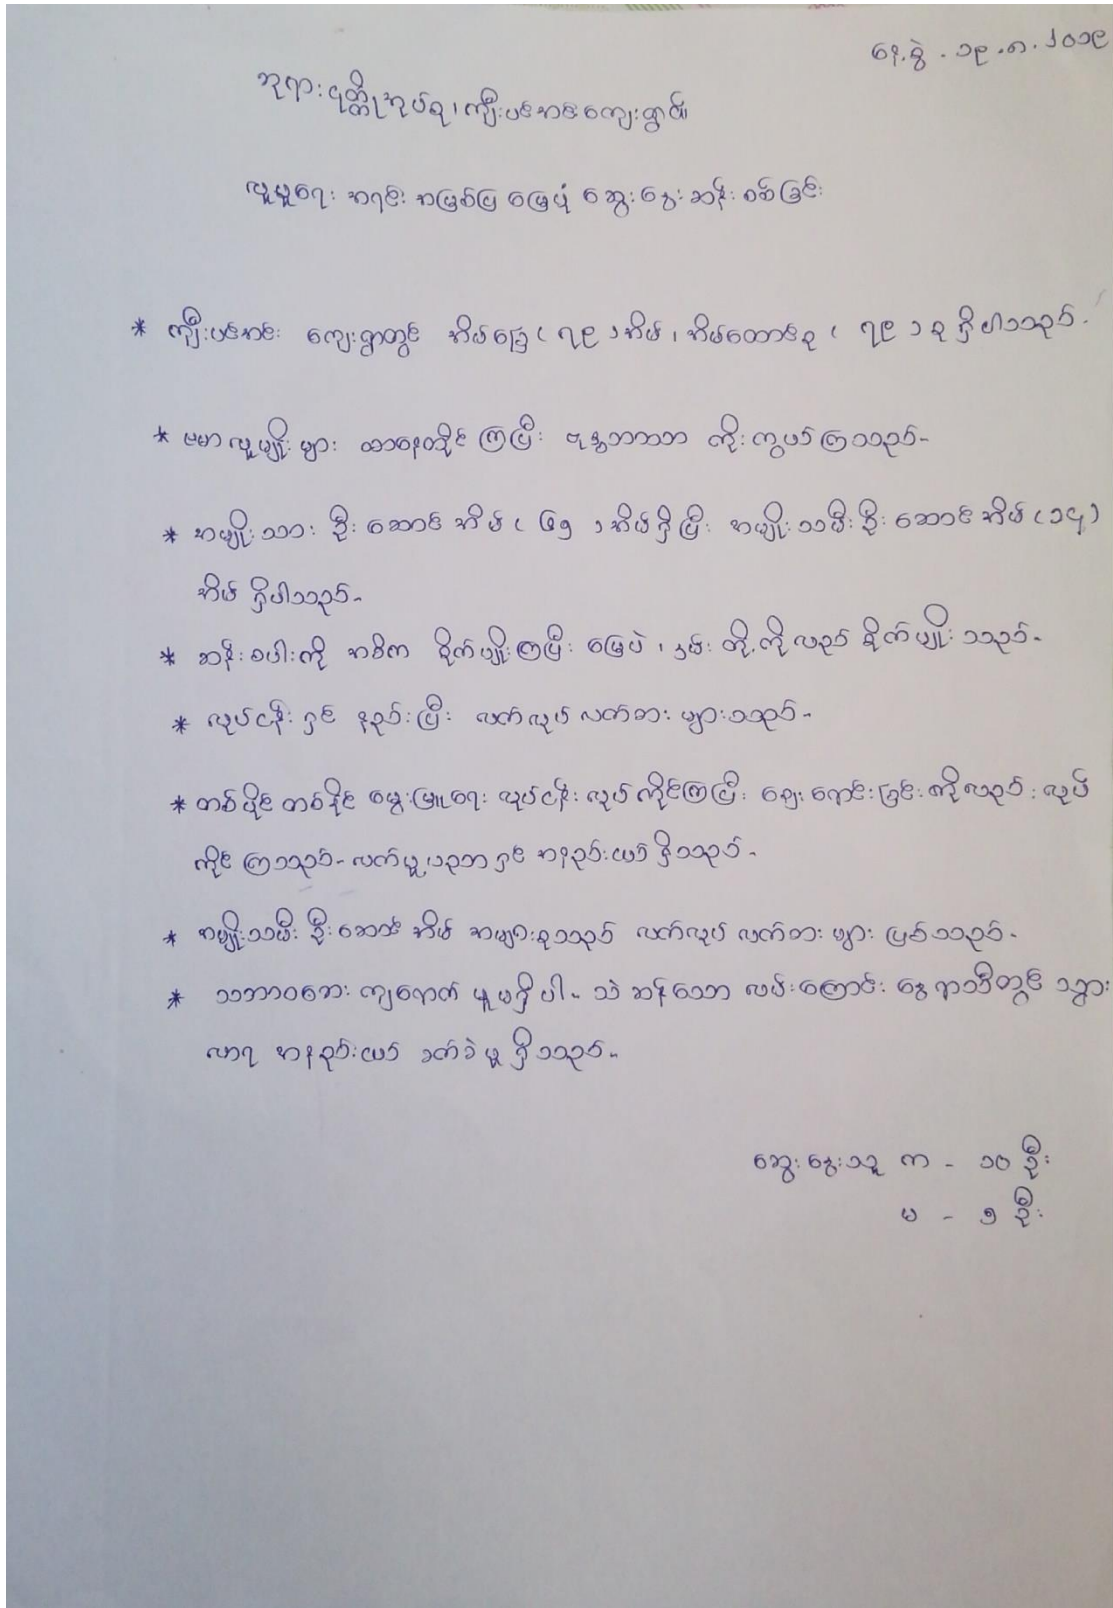 နေ့စွဲ - ၁၉.၈.၂၀၁၉
ဘုရားငုတ္တိုအုပ်စု၊ ကျီးပင်အင်းကျေးရွာ။
လူမှုရေး အရင်း အမြစ်ပြ မြေပုံ ဆွေးနွေး ဆန်းစစ်ခြင်း
* ကျီးပင်အင်း ကျေးရွာတွင် အိမ်ခြေ ( ၇၉ ) အိမ်၊ အိမ်ထောင်စု ( ၇၉ ) စု ရှိပါသည်။
* ဗမာလူမျိုးများ ထာနေထိုင်ကြပြီး ဗုဒ္ဓဘာသာ ကိုးကွယ်ကြသည်။
* အမျိုးသား ဦးဆောင်အိမ် ( ၆၅ ) အိမ်ရှိပြီး အမျိုးသမီး ဦးဆောင်အိမ် (၁၄)
အိမ် ရှိပါသည်။
* ဆန်စပါးကို အဓိက စိုက်ပျိုးကြပြီး မြေပဲ ၊ နှမ်း တို့ကိုလည် စိုက်ပျိုးသည်။
* လုပ်ငန်းရှင် နည်းပြီး လက်လုပ်လက်စား များသည်။
* တစ်ပိုင် တစ်နိုင် မွေးမြူရေး လုပ်ငန်း လုပ်ကိုင်ကြပြီး ဈေးရောင်းခြင်းကိုလည်း လုပ်
ကိုင်ကြသည်။ လက်မှုပညာရှင် အနည်းငယ် ရှိသည်။
* အမျိုးသမီး ဦးဆောင်အိမ် အများစုသည် လက်လုပ် လက်စား များ ဖြစ်သည်။
* သဘာဝဘေး ကျရောက်မှုမရှိပါ။ သဲဆန်သော လမ်းကြောင်း နွေရာသီတွင် သွား
လာရ အနည်းငယ် ခက်ခဲမှု ရှိသည်။
ဆွေးနွေးသူ ကျား - ၁၀ ဦး
မ - ၅ ဦး